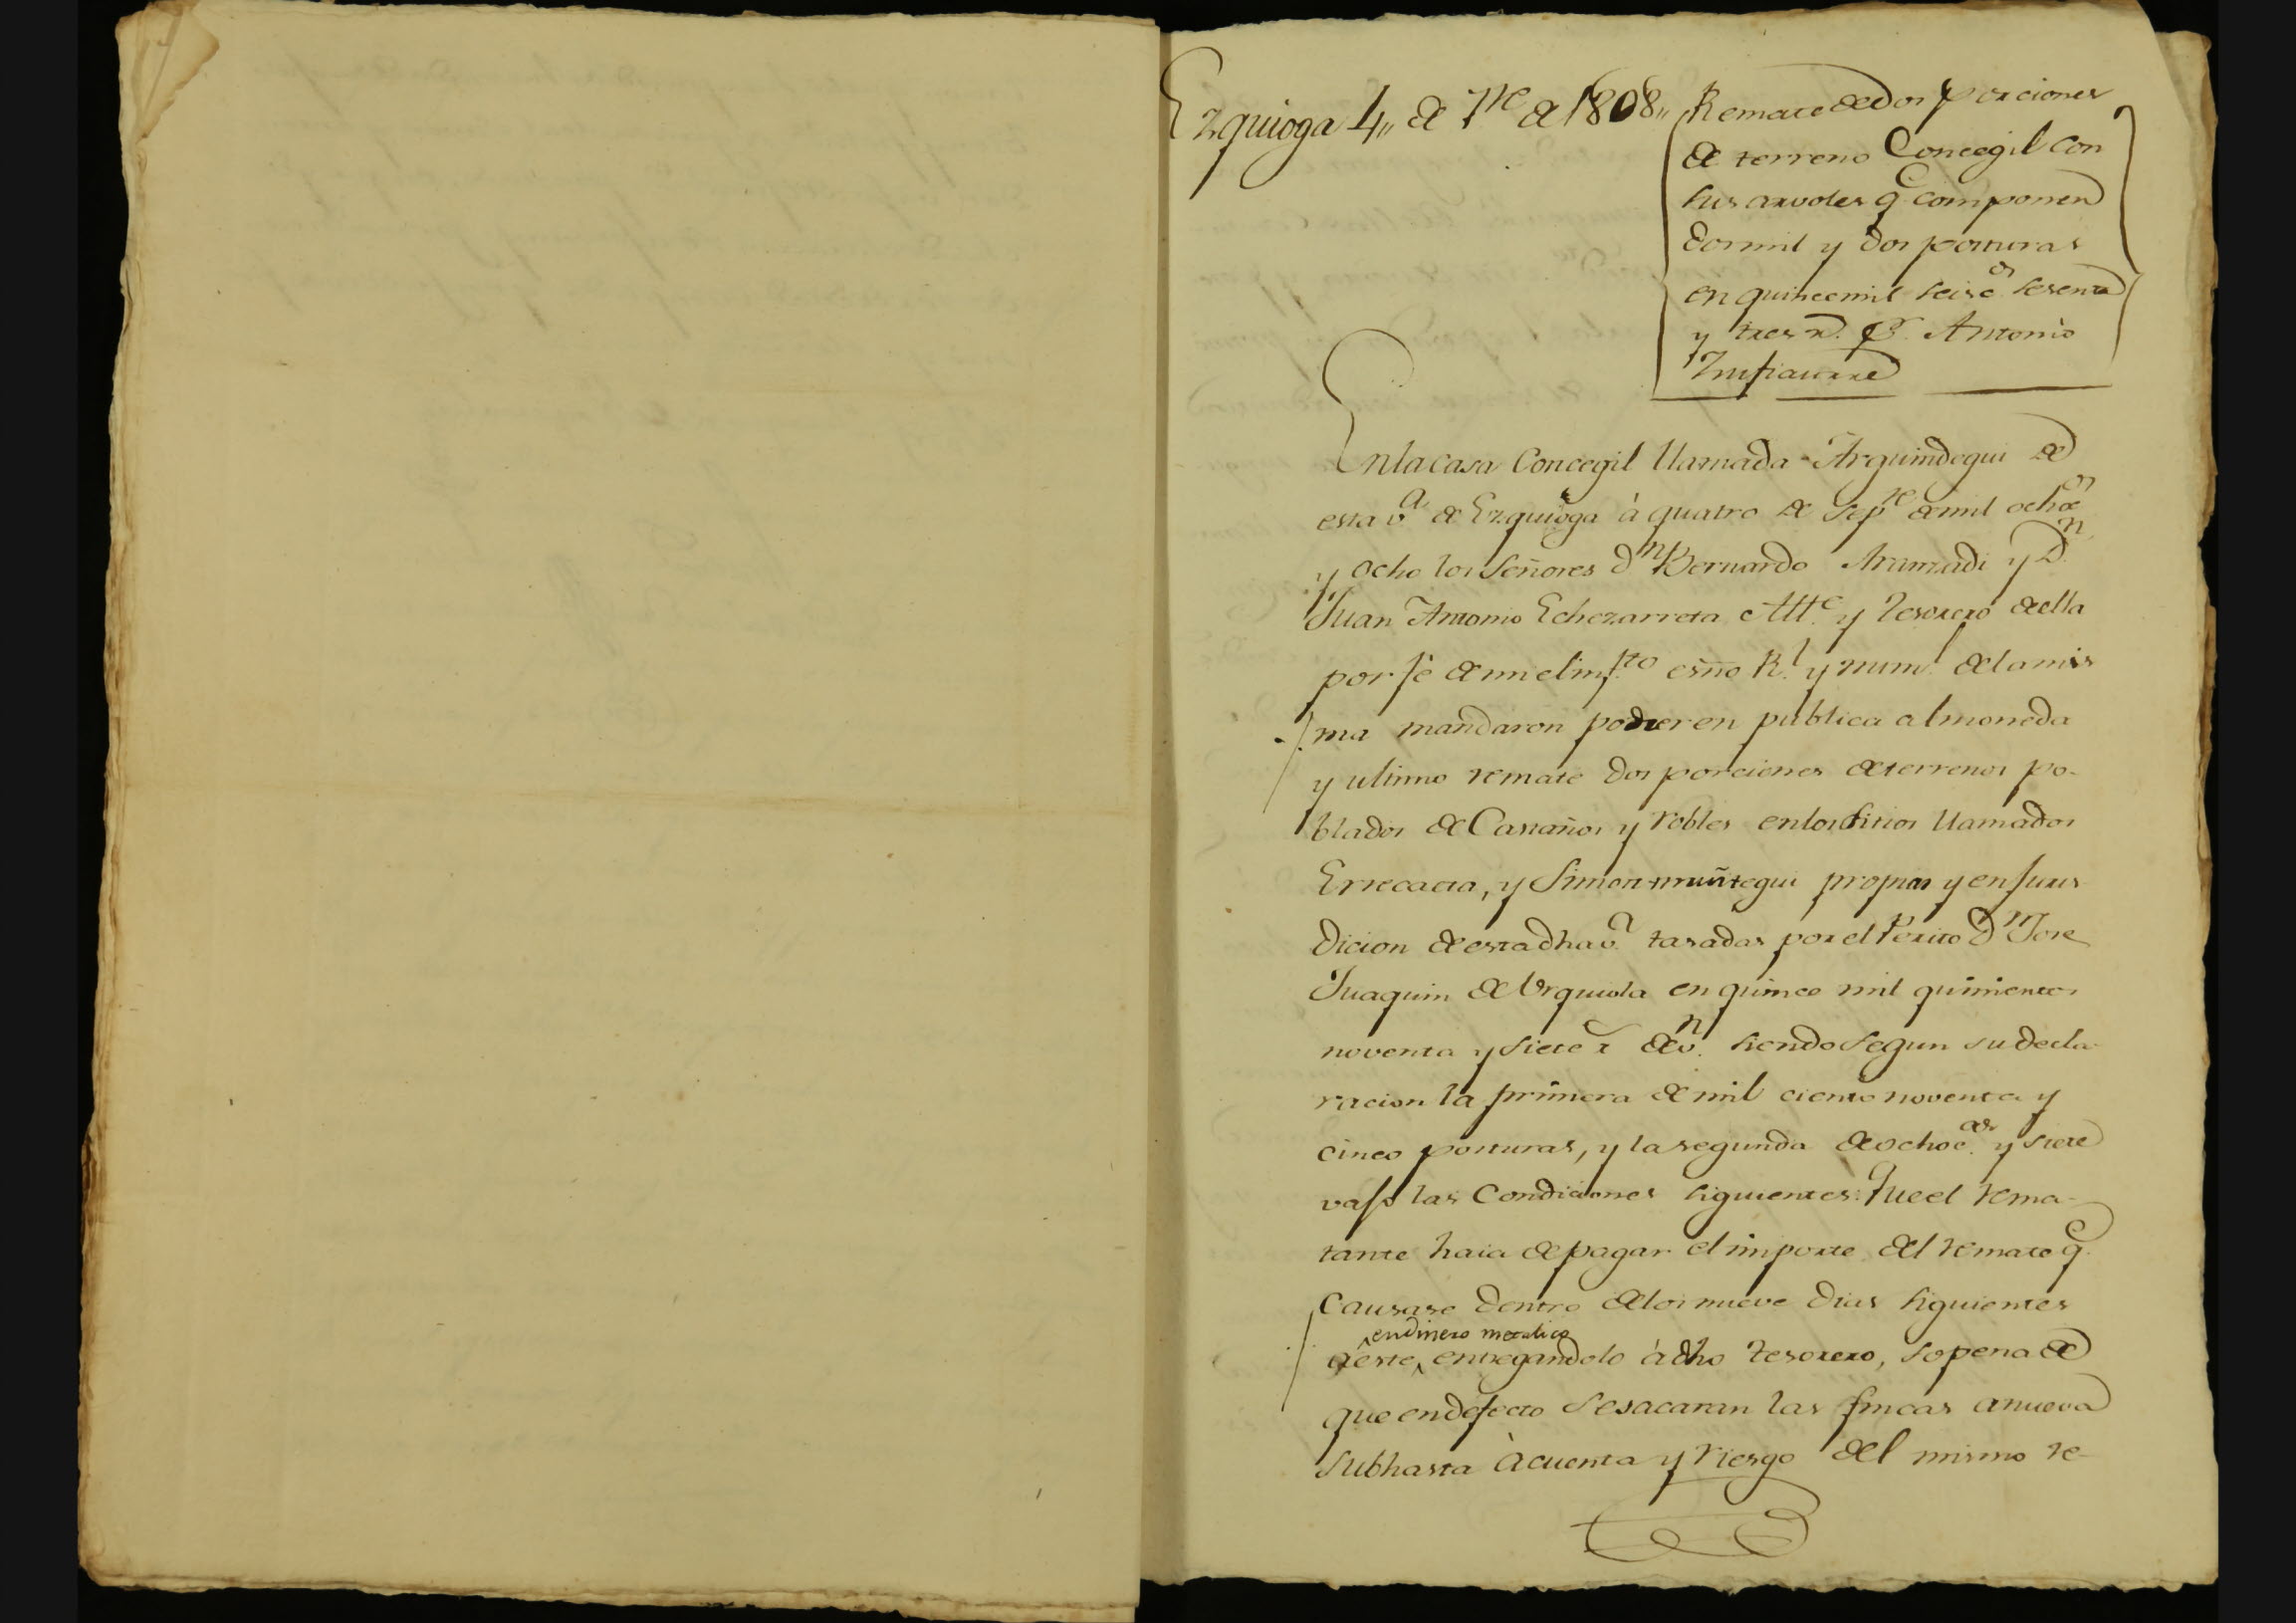 Ezquioga 4,, de 7re de 1808,,
Remate de dos porciones
de terreno Concegil con
sus arvoles q.e componen
dos mil y dos posturas
en quince mil seisc.os sesenta
y tres r.s Pr. Antonio
Insausti
En la casa Concegil llamada Arguindegui de
esta v.a de Ezquioga à quatro de Sep.re de mil ochoc.os
y ocho los Señores d.n Bernardo Aramadi y D.n
Juan Antonio Echezarreta Alt.e y Tesorero de ella
por fè de mi el inf.to esño R.l y num.l de la mis
ma mandaron poner en publica almoneda
y ultimo remate dos porciones de terrenos po-
blados de Castaños y robles en los sitios llamados
Errecacta, y Simon-muñtegui propias y en juris
dicion de esta dha v.a tasadas por el Perito D.n Jose
Juaquin de Urquiola en quince mil quinientos
noventa y siete r.s de v.n siendo segun su decla-
racion la primera de mil ciento noventa y
cinco posturas, y la segunda de ochoc.as y siete
vajo las Condiciones siguientes: Que el rema-
tante haia de pagar el importe del remate q.e
causase dentro de los nueve dias siguientes
en dinero metalico
à este, entregandolo à dho tesorero, sopena de
que en defecto se sacaran las fincas a nueva
subhasta à cuenta y riesgo del mismo re-